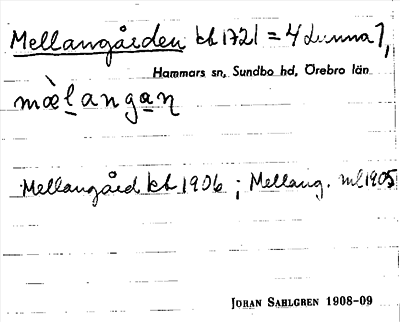 Mellangården kb 1721 = 4 Lunna 1,
Hammars sn, Sundbo hd, Örebro län
mæ̀l̲anga̲ņ
Mellangård kb 1906 ; Mellang. ml 1905
JOHAN SAHLGREN 1908-09